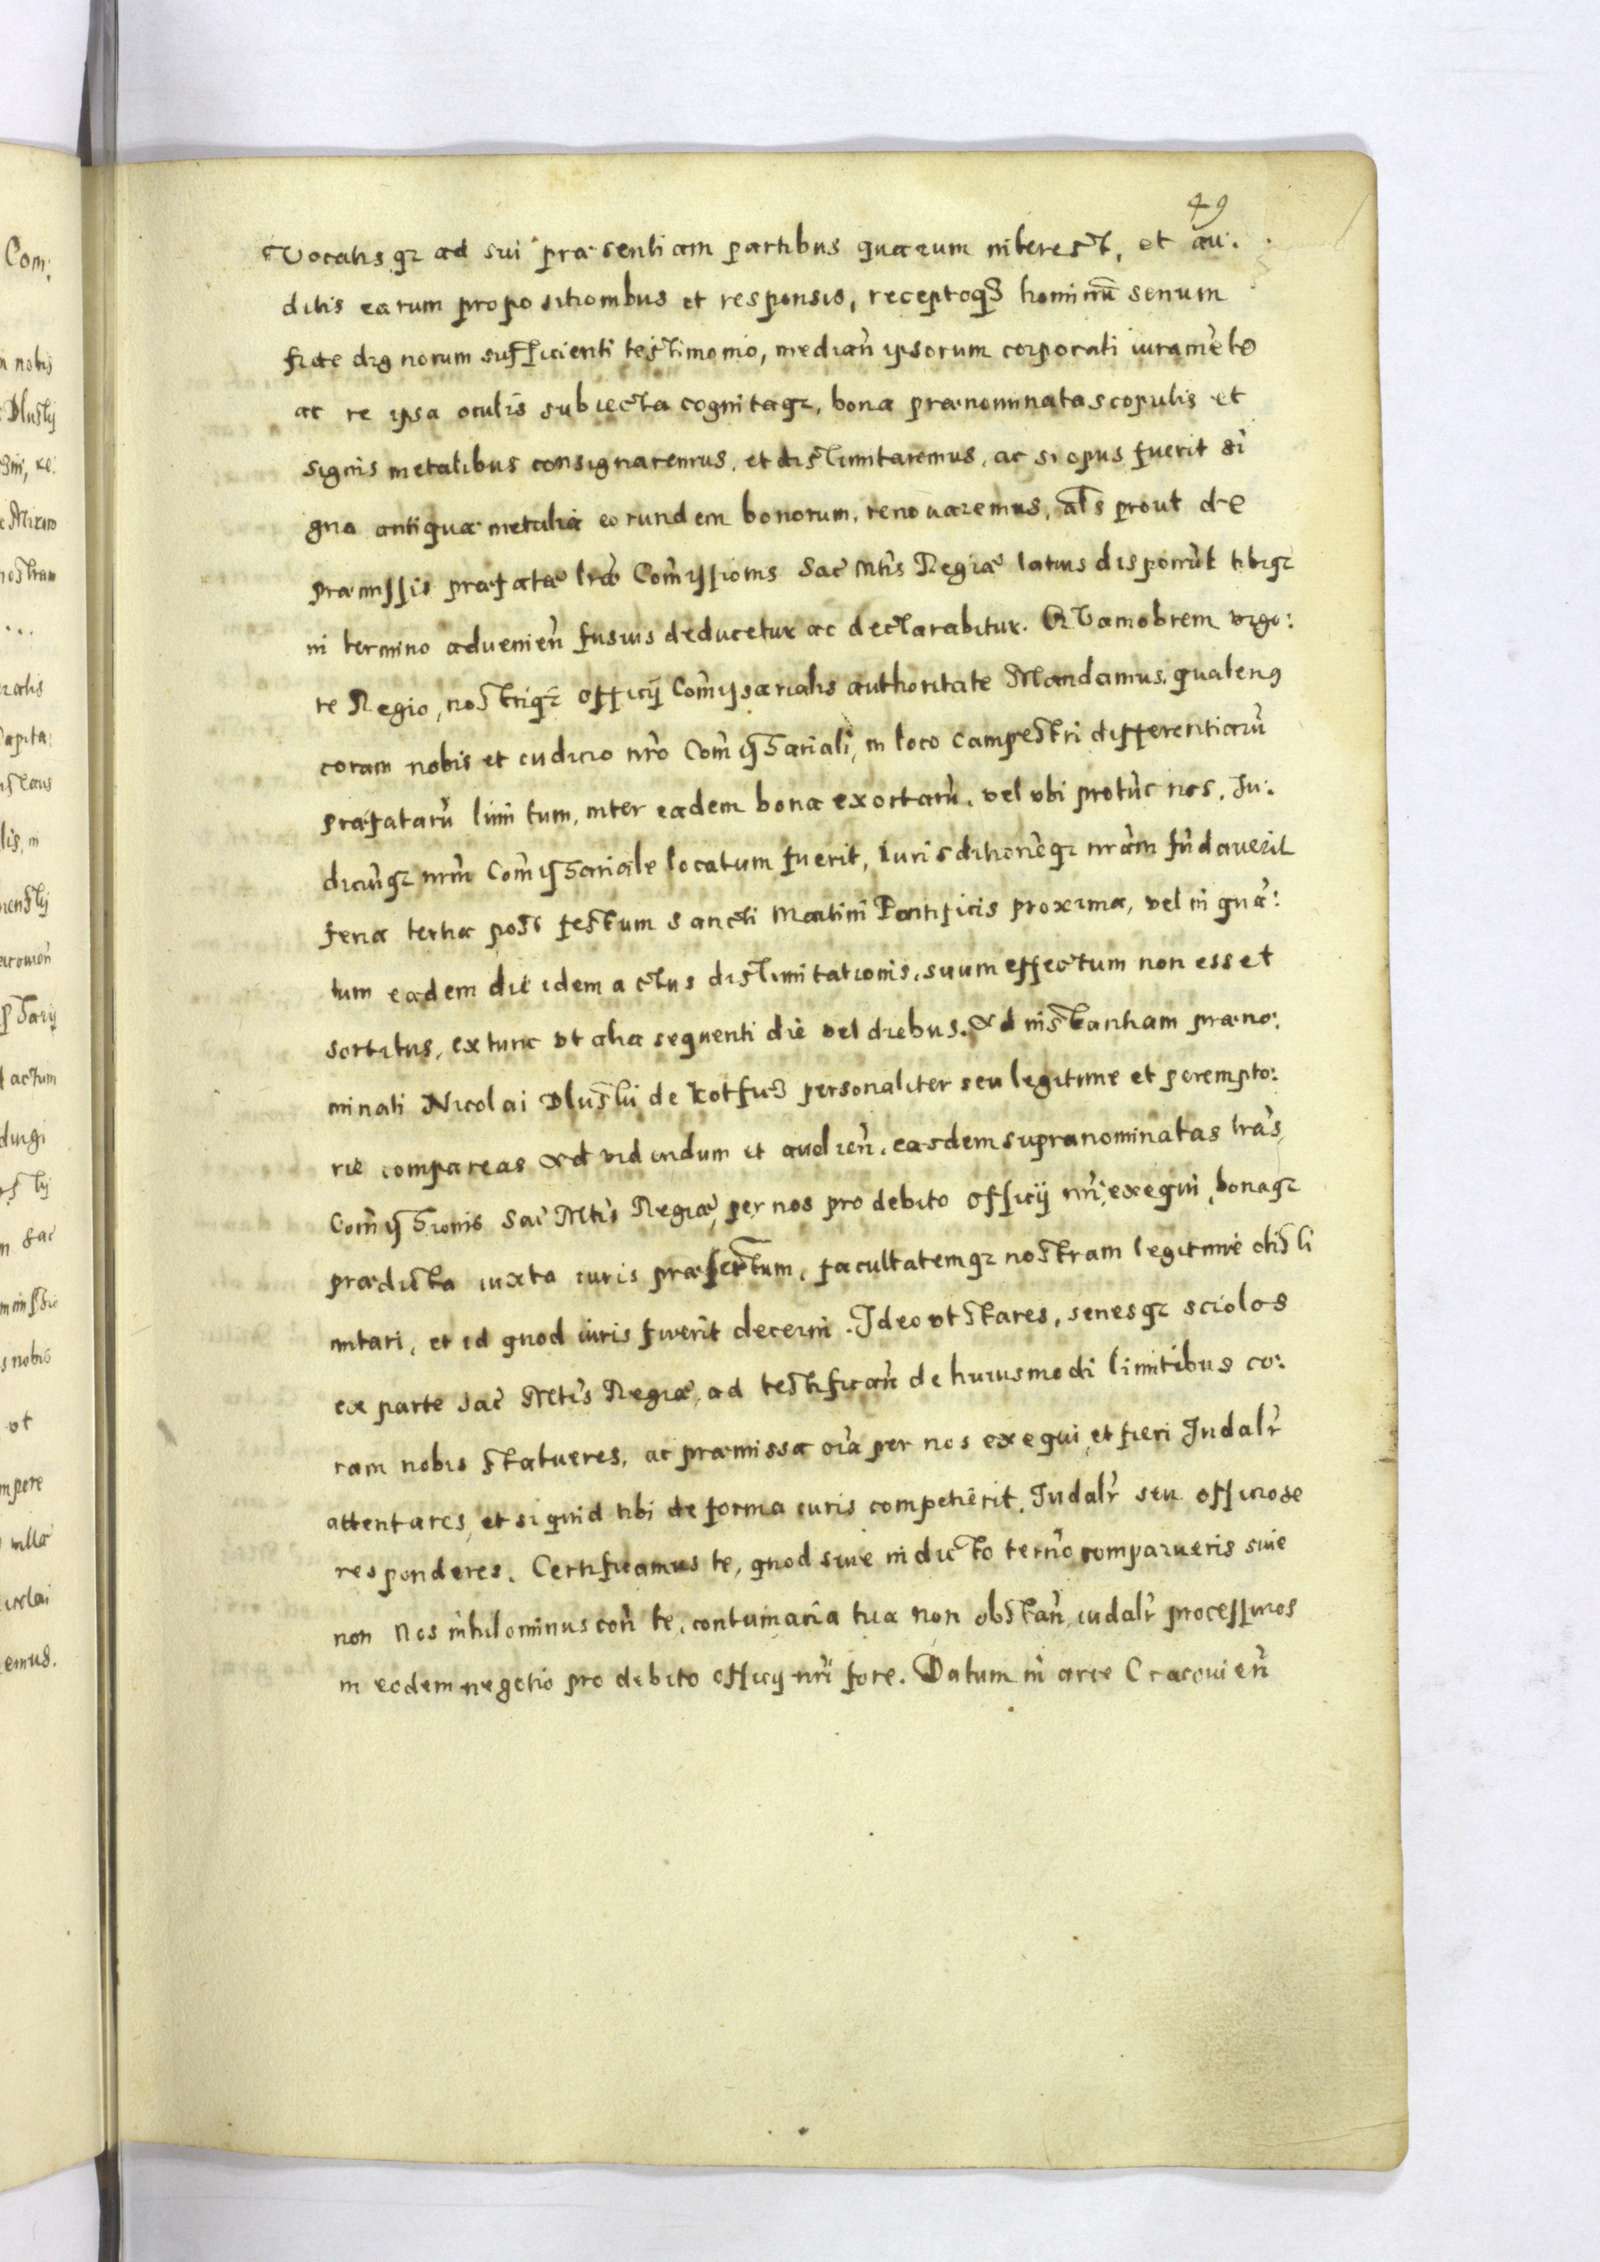 49
Vocatisqз ad sui præsentiam partibus quarum interest, et au:
ditis earum propositionibus et responsis, receptoqз hominū senum
fide dignorum sufficienti testimonio, median̄ ipsorum corporati iuramēto
ac re ipsa oculis subiecta cognitaqз, bona prænominata scopulis et
signis metalibus consignaremus, et distlimitaremus, ac si opus fuerit si
gna antiqua metalia eorundem bonorum, renovaremus, als prout de
præmissis præfatæ lræ Com̄issionis Sac̄ Mtis Regiæ latius disponūt tibiqз
in termino advenien̄ fusius deducetur ac declarabitur. Quamobrem vigo:
re Regio, nostriqз officij Com̄issarialis authoritate Mandamus, quatenus
coram nobis et iudicio nr̄o Com̄issariali, in loco campestri differentiarū
præfatarū limitum, inter eadem bona exortarū, vel ubi protūc nos, Iu:
diciūqз nr̄m Com̄issariale locatum fuerit, Iurisditionēqз nr̄am fūdaverit
feria tertia post festum sancti Martini Pontificis proxima, vel in quā:
tum eadem die idem actus distlimitationis, suum effectum non esset
sortitus, extunc ut alia sequenti die vel diebus. Ad instantiam præno:
minati Nicolai Dluski de Kotfus personaliter seu legitime et perempto:
rie compareas Ad videndum et audien̄, easdem supranominatas lras,
Com̄issionis Sac̄ Mtis Regiæ, per nos pro debito officij nr̄i, exequi, bonaqз
prædicta iuxta iuris præscriptum, facultatemqз nostram legitime distli
mitari, et id quod iuris fuerit decerni. Ideo ut stares, senesqз sciolos
ex parte Sac̄ Mtis Regiæ, ad testifican̄ de huiusmodi limitibus co:
ram nobis statueres, ac præmissa oīa per nos exequi, et fieri Iudalr̄
attentares, et si quid tibi de forma iuris competierit, Iudalr̄ seu officiose
responderes. Certificamus te, quod sive in dicto termo comparueris sive
non Nos nihilominus con̄ te, contumacia tua non obstan̄, iudalr̄ processuros
in eodem negotio pro debito officij nr̄i fore. Datum in arce Cracovien̄